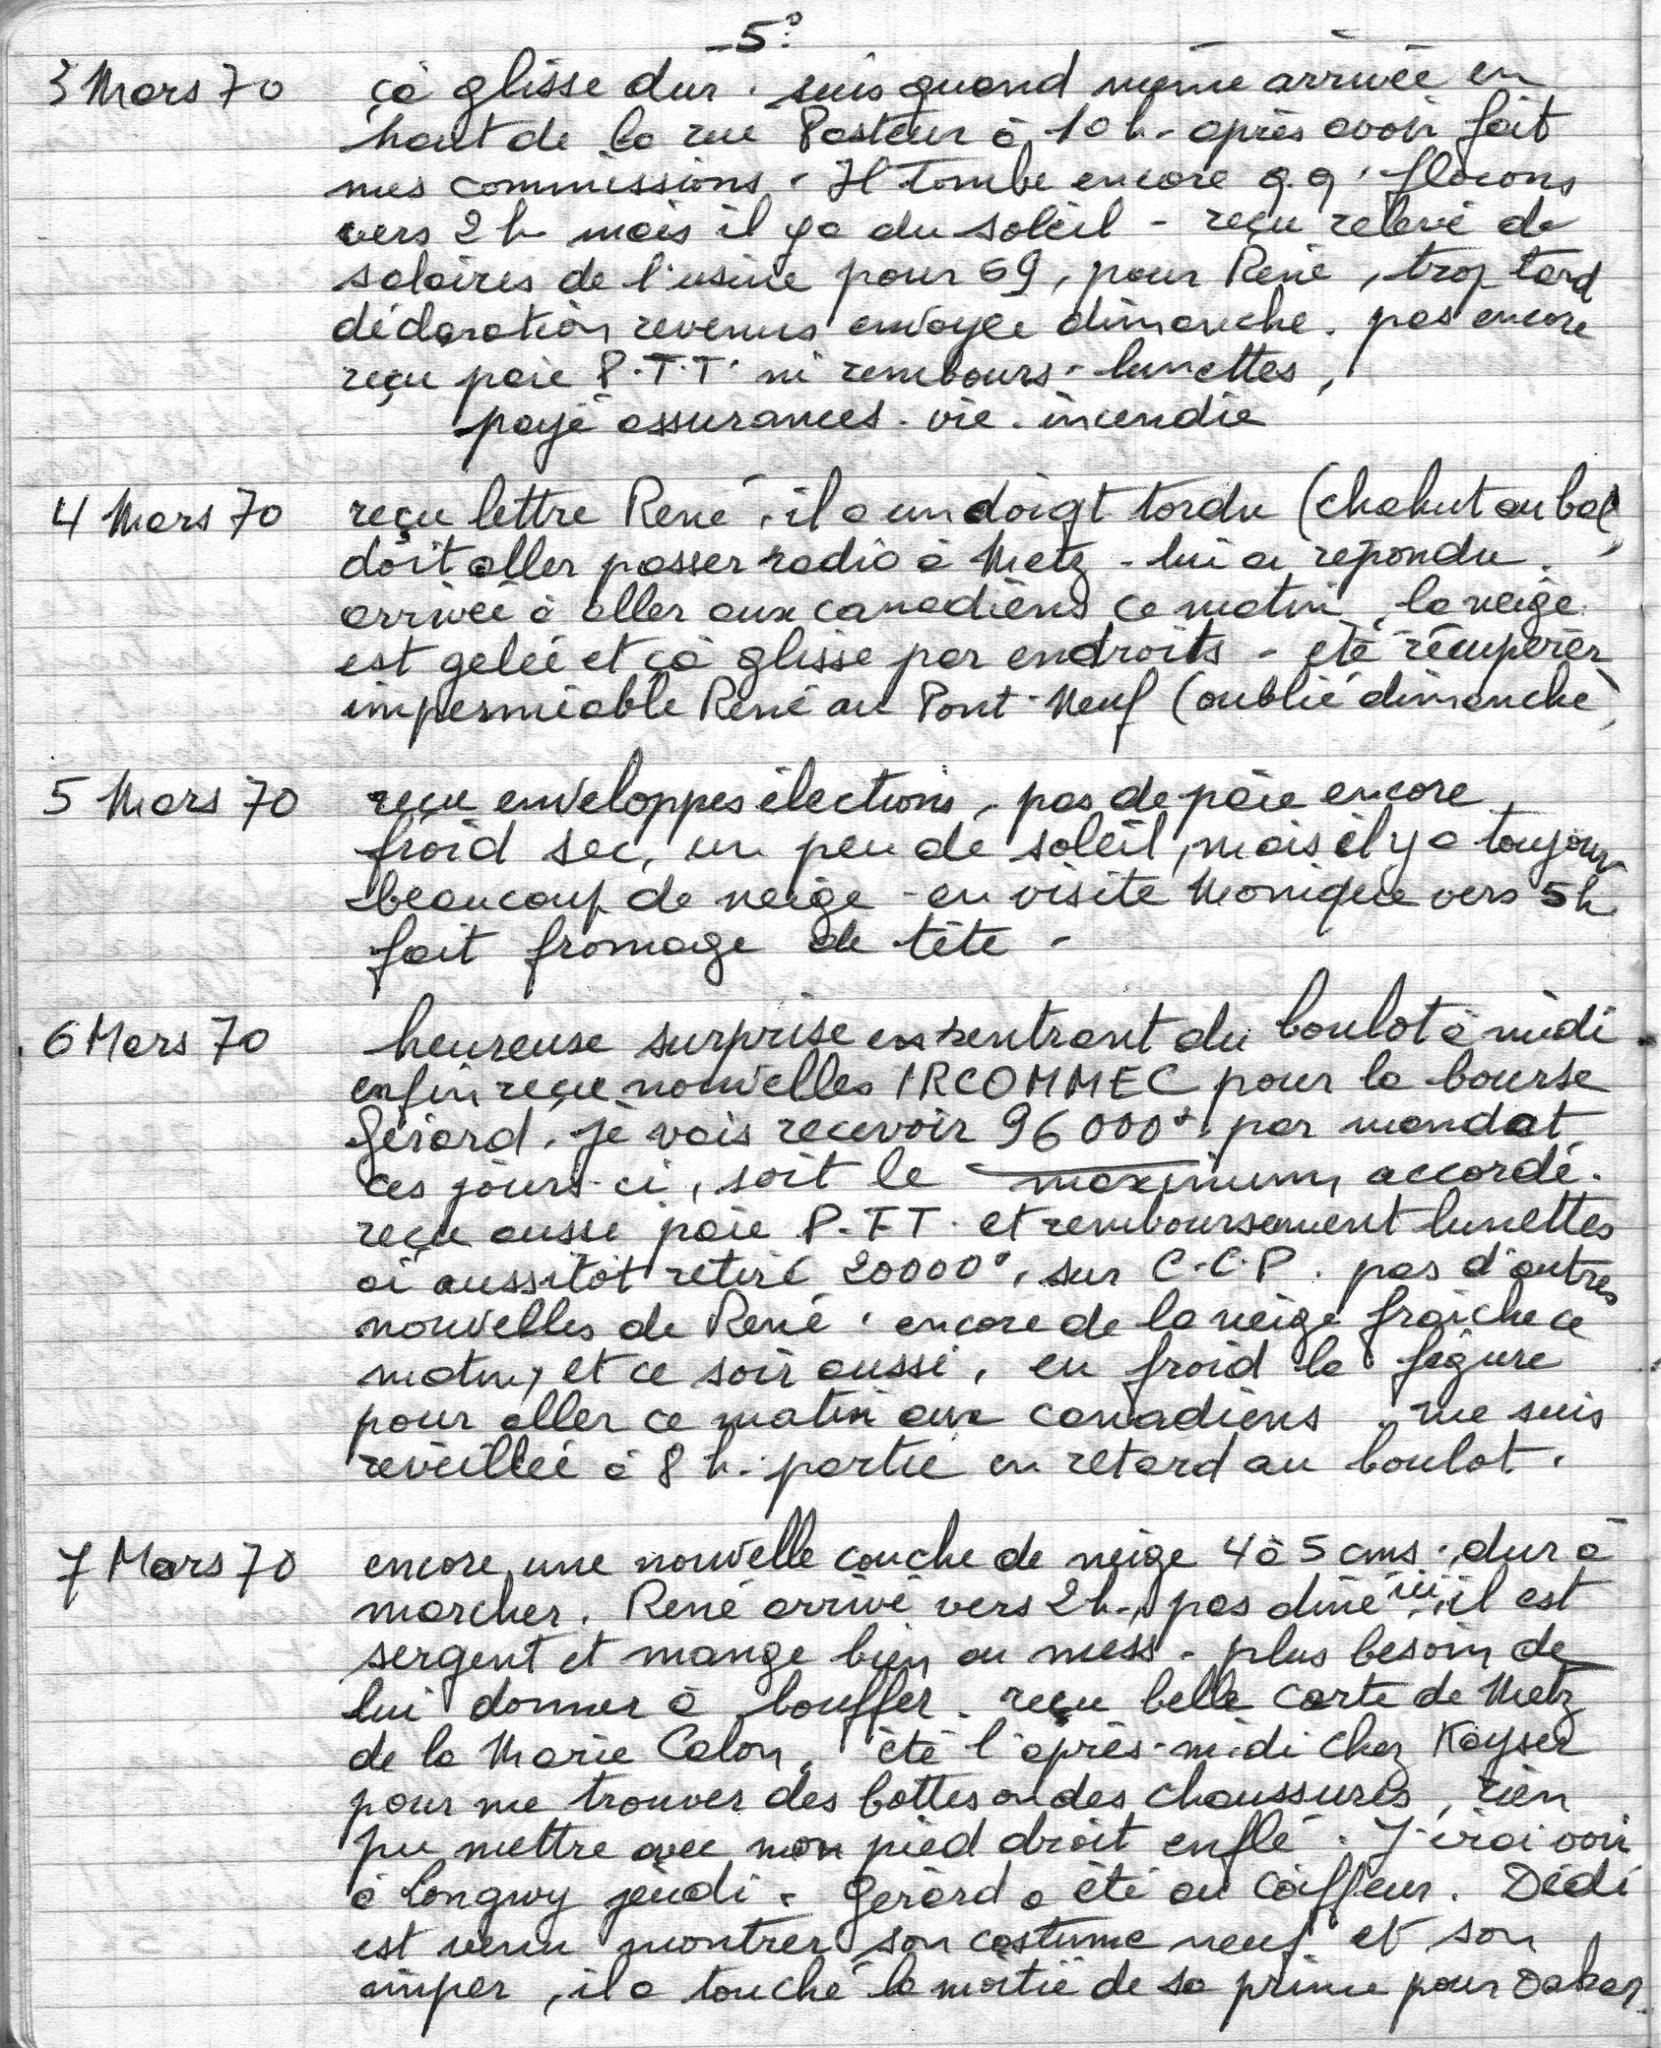 -5°
3 Mars 70 çà glisse dur. suis quand même arrivée en
haut de la rue Pasteur à 10 h - après avoir fait
mes commissions. Il tombe encore q.q. flocons
vers 2 h mais il y a du soleil - reçu relevé de
salaires de l'usine pour 69, pour René, trop tard
déclaration revenus envoyée dimanche. pas encore
reçu paie P.T.T. ni rembours. lunettes,
payé assurances. vie. incendie
4 Mars 70 reçu lettre René, il a un doigt tordu (chahut au bal)
doit aller passer radio à Metz - lui ai répondu.
arrivée à aller aux canadiens ce matin, la neige
est gelée et çà glisse par endroits - été récupérer
imperméable René au Pont-Neuf (oublié dimanche)
5 Mars 70 reçu enveloppes élections, pas de paie encore,
froid sec, un peu de soleil, mais il y a toujours
beaucoup de neige - eu visite Monique vers 5h
fait fromage de tête -
6 Mars 70 heureuse surprise en rentrant du boulot à midi
enfin reçu nouvelles IRCOMMEC pour la bourse
Gérard, je vais recevoir 96 000 par mandat
ces jours-ci, soit le maximum accordé.
reçu aussi paie P.T.T. et remboursement lunettes
ai aussitôt retiré 20000 sur C.C.P. pas d'autres
nouvelles de René, encore de la neige fraîche ce
matin, et ce soir aussi, eu froid la figure
pour aller ce matin aux canadiens, me suis
réveillée à 8 h. partie en retard au boulot.
7 Mars 70 encore une nouvelle couche de neige 4 à 5 cms. dur à
marcher. René arrivé vers 2h, pas dîné ici, il est
sergent et mange bien au mess - plus besoin de
lui donner à bouffer. reçu belle carte de Metz
de la Marie Colon, été l'après-midi chez Kayser
pour me trouver des bottes ou des chaussures, rien
pu mettre avec mon pied droit enflé. J'irai voir
à Longwy jeudi. Gérard a été au coiffeur. Dédi
est venu montrer son costume neuf et son
imper, il a touché la moitié de sa prime pour Dakar.